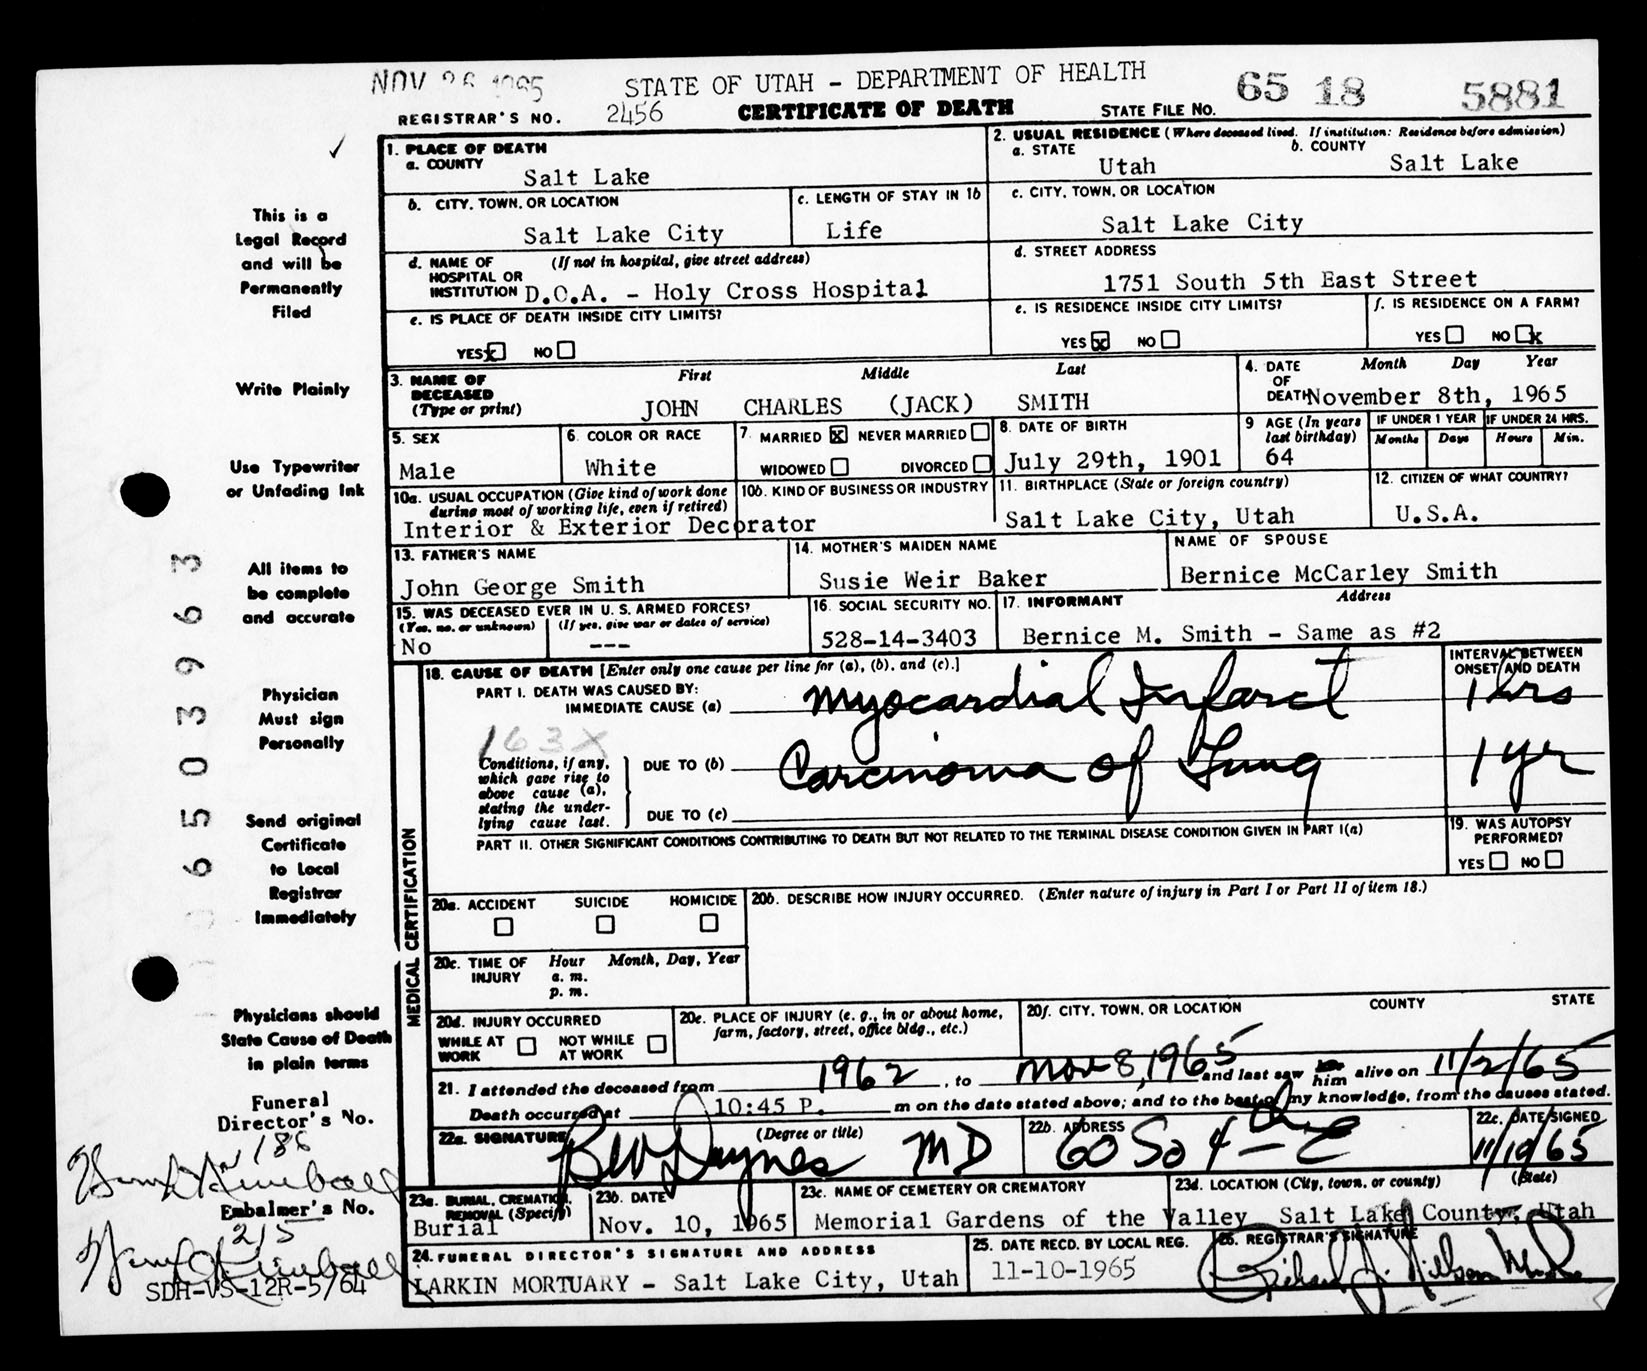 NOV 26 1965
STATE OF UTAH - DEPARTMENT OF HEALTH
65 18 5881
REGISTRAR'S NO. 2456 CERTIFICATE OF DEATH STATE FILE NO.
This is a
Legal Record
and will be
Permanently
Filed
Write Plainly
Use Typewriter
or Unfading Ink
All items to
be complete
and accurate
Physician
Must sign
Personally
Send original
Certificate
to Local
Registrar
Immediately
Physicians should
State Cause of Death
in plain terms
Funeral
Director's No.
186
Embalmer's No.
215
SDH-VS-12R-5/64
6503963
1. PLACE OF DEATH
a. COUNTY
Salt Lake
2. USUAL RESIDENCE (Where deceased lived. If institution: Residence before admission)
a. STATE b. COUNTY
Utah Salt Lake
b. CITY, TOWN, OR LOCATION
Salt Lake City
c. LENGTH OF STAY IN 1b
Life
c. CITY, TOWN, OR LOCATION
Salt Lake City
d. NAME OF (If not in hospital, give street address)
HOSPITAL OR
INSTITUTION D.O.A. - Holy Cross Hospital
d. STREET ADDRESS
1751 South 5th East Street
e. IS PLACE OF DEATH INSIDE CITY LIMITS?
YES x NO
e. IS RESIDENCE INSIDE CITY LIMITS?
YES x NO
f. IS RESIDENCE ON A FARM?
YES NO x
3. NAME OF First Middle Last
DECEASED
(Type or print) JOHN CHARLES (JACK) SMITH
4. DATE Month Day Year
OF
DEATH November 8th, 1965
5. SEX
Male
6. COLOR OR RACE
White
7. MARRIED x NEVER MARRIED
WIDOWED DIVORCED
8. DATE OF BIRTH
July 29th, 1901
9 AGE (In years
last birthday)
64
IF UNDER 1 YEAR IF UNDER 24 HRS.
Months Days Hours Min.
10a. USUAL OCCUPATION (Give kind of work done
during most of working life, even if retired)
Interior & Exterior Decorator
10b. KIND OF BUSINESS OR INDUSTRY
11. BIRTHPLACE (State or foreign country)
Salt Lake City, Utah
12. CITIZEN OF WHAT COUNTRY?
U.S.A.
13. FATHER'S NAME
John George Smith
14. MOTHER'S MAIDEN NAME
Susie Weir Baker
NAME OF SPOUSE
Bernice McCarley Smith
15. WAS DECEASED EVER IN U. S. ARMED FORCES?
(Yes, no, or unknown) (If yes, give war or dates of service)
No ---
16. SOCIAL SECURITY NO.
528-14-3403
17. INFORMANT Address
Bernice M. Smith - Same as #2
MEDICAL CERTIFICATION
18. CAUSE OF DEATH [Enter only one cause per line for (a), (b), and (c).]
INTERVAL BETWEEN
ONSET AND DEATH
PART I. DEATH WAS CAUSED BY:
IMMEDIATE CAUSE (a) Myocardial Infarct 1 hrs
163X
Conditions, if any,
which gave rise to
above cause (a),
stating the under-
lying cause last.
DUE TO (b) Carcinoma of Lung 1 yr
DUE TO (c)
PART II. OTHER SIGNIFICANT CONDITIONS CONTRIBUTING TO DEATH BUT NOT RELATED TO THE TERMINAL DISEASE CONDITION GIVEN IN PART I(a)
19. WAS AUTOPSY
PERFORMED?
YES NO
20a. ACCIDENT SUICIDE HOMICIDE
20b. DESCRIBE HOW INJURY OCCURRED. (Enter nature of injury in Part I or Part II of item 18.)
20c. TIME OF Hour Month, Day, Year
INJURY a. m.
p. m.
20d. INJURY OCCURRED
WHILE AT NOT WHILE
WORK AT WORK
20e. PLACE OF INJURY (e. g., in or about home,
farm, factory, street, office bldg., etc.)
20f. CITY, TOWN, OR LOCATION COUNTY STATE
21. I attended the deceased from 1962, to Nov 8, 1965 and last saw her him alive on 11/2/65
Death occurred at 10:45 P. m on the date stated above; and to the best of my knowledge, from the causes stated.
22a. SIGNATURE (Degree or title)
Daynes MD
22b. ADDRESS
60 So 4th E
22c. DATE SIGNED
11/10/65
23a. BURIAL, CREMATION,
REMOVAL (Specify)
Burial
23b. DATE
Nov. 10, 1965
23c. NAME OF CEMETERY OR CREMATORY
Memorial Gardens of the Valley
23d. LOCATION (City, town, or county) (State)
Salt Lake County, Utah
24. FUNERAL DIRECTOR'S SIGNATURE AND ADDRESS
LARKIN MORTUARY - Salt Lake City, Utah
25. DATE RECD. BY LOCAL REG.
11-10-1965
26. REGISTRAR'S SIGNATURE